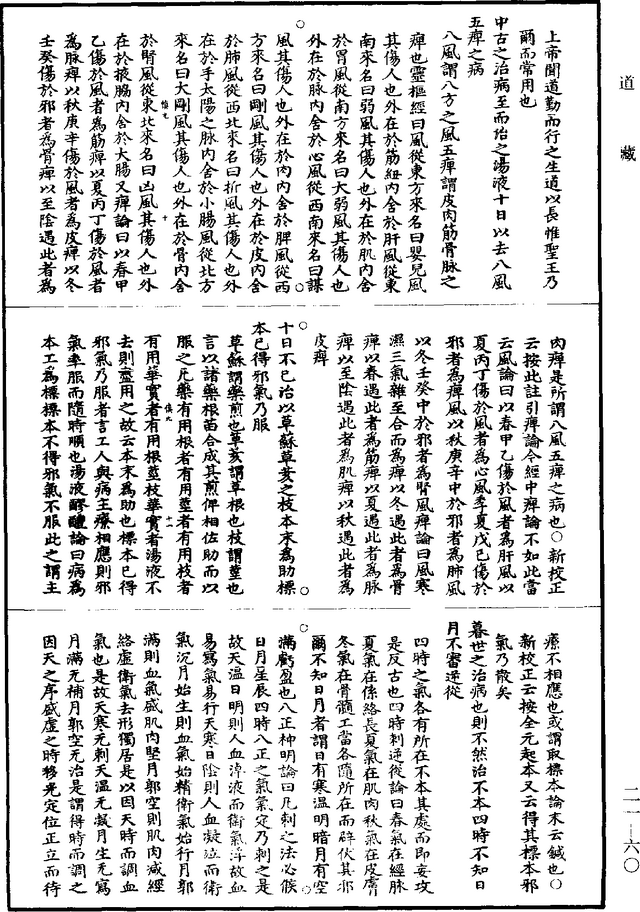 道藏
上帝聞道勤而行之生道以長惟聖王乃
爾而常用也
中古之治病至而治之湯液十日以去八風
五痺之病
八風謂八方之風五痺謂皮肉筋骨脉之
痺也靈樞經曰風從東方來名曰嬰兒風
其傷人也外在於筋紐內舍於肝風從東
南來名曰弱風其傷人也外在於肌內舍
於胃風從南方來名曰大弱風其傷人也
外在於脉內舍於心風從西南來名曰謀
風其傷人也外在於肉內舍於脾風從西
方來名曰剛風其傷人也外在於皮內舍
於肺風從西北來名曰折風其傷人也外
在於手太陽之脉內舍於小腸風從北方
來名曰大剛風其傷人也外在於骨內舍
於腎風從東北來名曰凶風其傷人也外
在於掖脇內舍於大腸又痺論曰以春甲
乙傷於風者為筋痺以夏丙丁傷於風者
為脉痺以秋庚辛傷於風者為皮痺以冬
壬癸傷於邪者為骨痺以至陰遇此者為
肉痺是所謂八風五痺之病也○新校正
云按此註引痺論今經中痺論不如此當
云風論曰以春甲乙傷於風者為肝風以
夏丙丁傷於風者為心風季夏戊己傷於
邪者為脾風以秋庚辛中於邪者為肺風
以冬壬癸中於邪者為腎風痺論曰風寒
濕三氣雜至合而為痺以冬遇此者為骨
痺以春遇此者為筋痺以夏遇此者為脉
痺以至陰遇此者為肌痺以秋遇此者為
皮痺
十日不已治以草蘇草荄之枝本末為助標
本已得邪氣乃服
草蘇謂藥煎也草荄謂草根也枝謂莖也
言以諸藥根苗合成其煎俾相佐助而以
服之凡藥有用根者有用莖者有用枝者
有用華實者有用根莖枝華實者湯液不
去則盡用之故云本末為助也標本已得
邪氣乃服者言工人與病主療相應則邪
氣率服而隨時順也湯液醪醴論曰病為
本工為標標本不得邪氣不服此之謂主
療不相應也或謂取標本論末云鍼也○
新校正云按全元起本又云得其標本邪
氣乃散矣
暮世之治病也則不然治不本四時不知日
月不審逆從
四時之氣各有所在不本其處而即妄攻
是反古也四時刺逆從論曰春氣在經脉
夏氣在孫絡長夏氣在肌肉秋氣在皮膚
冬氣在骨髓工當各隨所在而辟伏其邪
爾不知日月者謂日有寒溫明暗月有空
滿虧盈也八正神明論曰凡刺之法必候
日月星辰四時八正之氣氣定乃刺之是
故天溫日明則人血淖液而衛氣浮故血
易寫氣易行天寒日陰則人血凝泣而衛
氣沉月始生則血氣始精衛氣始行月郭
滿則血氣盛肌肉堅月郭空則肌肉減經
絡虛衛氣去形獨居是以因天時而調血
氣也是故天寒无刺天溫无凝月生无寫
月滿无補月郭空无治是謂得時而調之
因天之序盛虛之時移光定位正立而待
二一-六〇